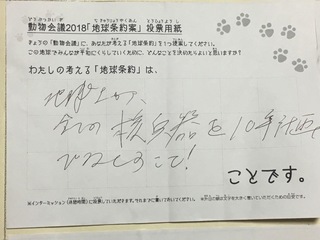 動物会議2018「地球条約案」投票用紙
きょうの「動物会議」に、あなたが考える「地球条約」を1つ提案してください。
この地球でみんなが平和にくらしていくために、どんなことを決めたらよいと思いますか?
わたしの考える「地球条約」は、
地球上から、
全ての核兵器を10年計画
でなしろこと!
ことです。